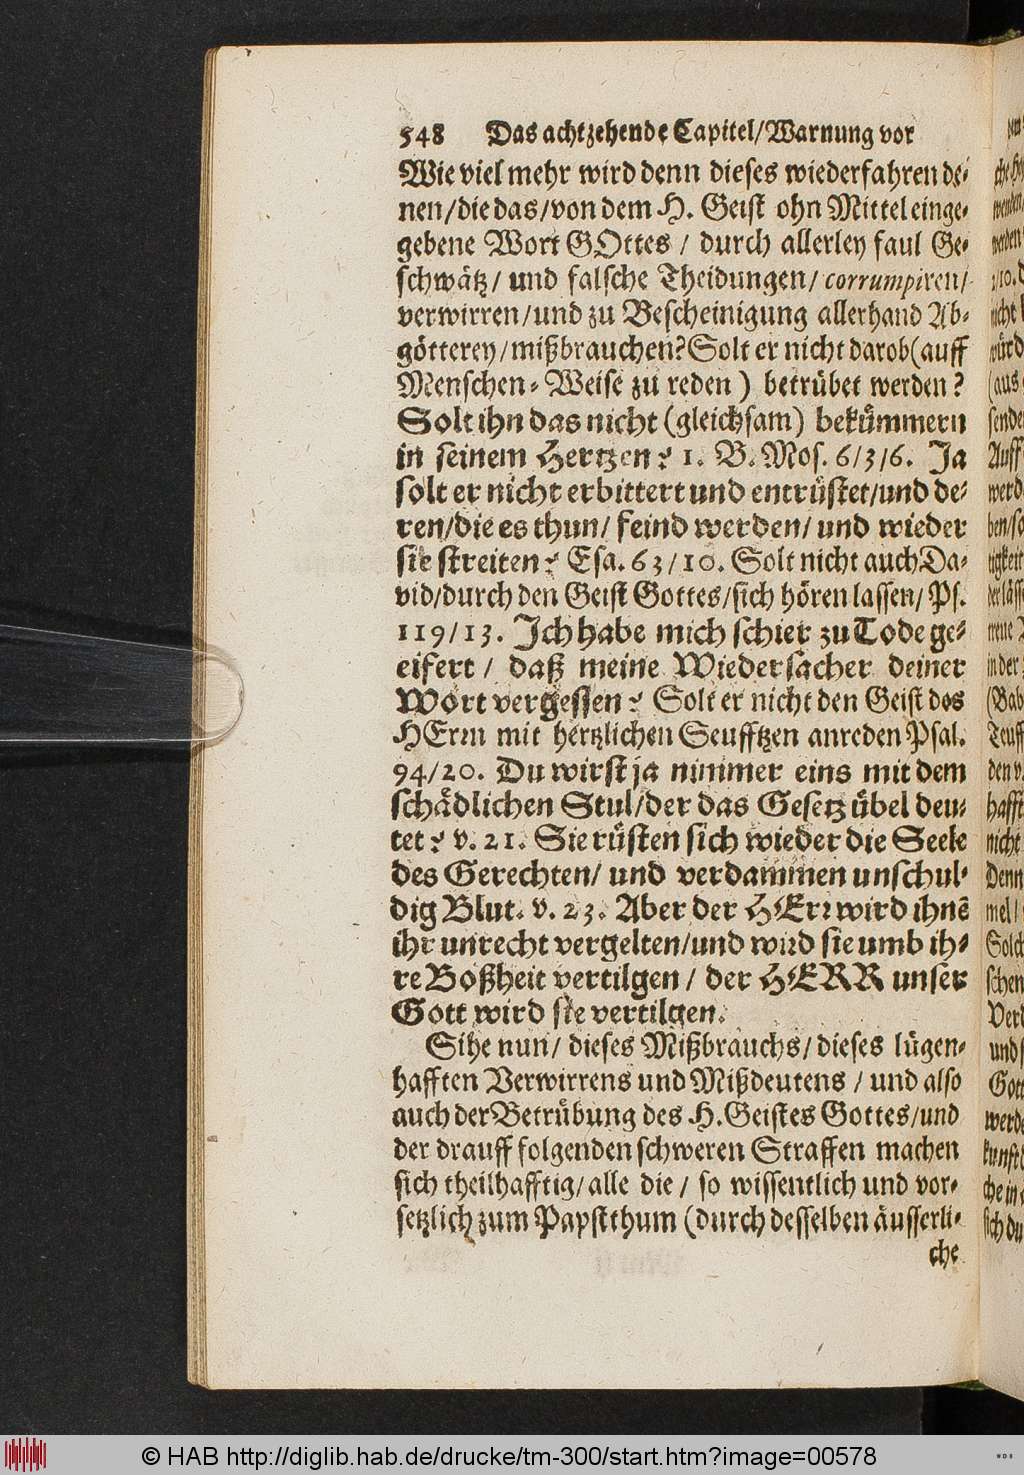 548 Das achtzehende Capitel/Warnung vor
Wie viel mehr wird denn dieses wiederfahren de-
nen/die das/von dem H. Geist ohn Mittel einge-
gebene Wort GOttes / durch allerley faul Ge-
schwätz/ und falsche Theidungen/ corrumpiren/
verwirren/und zu Bescheinigung allerhand Ab-
götterey/mißbrauchen? Solt er nicht darob (auff
Menschen-Weise zu reden) betrübet werden?
Solt ihn das nicht (gleichsam) bekümmern
in seinem Hertzen? 1. B. Mos. 6/3/6. Ja
solt er nicht erbittert und entrüstet/und de-
ren/die es thun/ feind werden/ und wieder
sie streiten? Esa. 63/10. Solt nicht auch Da-
vid/durch den Geist Gottes/sich hören lassen/ Ps.
119/13. Ich habe mich schier zu Tode ge-
eifert / daß meine Wiedersacher deiner
Wort vergessen? Solt er nicht den Geist des
HErrn mit hertzlichen Seufftzen anreden Psal.
94/20. Du wirst ja nimmer eins mit dem
schädlichen Stul/der das Gesetz übel deu-
tet? v. 21. Sie rüsten sich wieder die Seele
des Gerechten/ und verdammen unschul-
dig Blut. v. 23. Aber der HErr wird ihnē
ihr unrecht vergelten/und wird sie umb ih-
re Boßheit vertilgen / der HERR unser
Gott wird sie vertilgen.
Sihe nun/ dieses Mißbrauchs/ dieses lügen-
hafften Verwirrens und Mißdeutens / und also
auch der Betrübung des H. Geistes Gottes/und
der drauff folgenden schweren Straffen machen
sich theilhafftig/ alle die / so wissentlich und vor-
setzlich zum Papstthum (durch desselben äusserli-
che
© HAB http://diglib.hab.de/drucke/tm-300/start.htm?image=00578